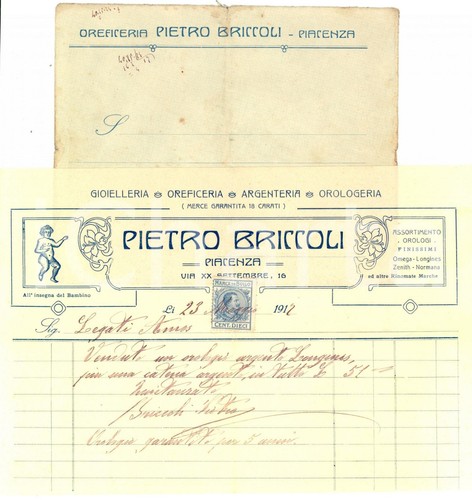 OREFICERIA PIETRO BRICCOLI - PIACENZA
S
GIOIELLERIA OREFICERIA ARGENTERIA OROLOGERIA
( MERCE GARANTITA 18 CARATI )
PIETRO BRICCOLI
PIACENZA
VIA XX SETTEMBRE, 16
All' insegna del Bambino
ASSORTIMENTO
OROLOGI
FINISSIMI
Omega - Longines
Zenith - Normana
ed altre Rinomate Marche
MARCA DA BOLLO
CENT. DIECI
Li 23 Maggio 1912
Sig. Legati Amos
Venduto un orologio argento Longines,
più una catena argento, in tutto L 51
Briccoli Pietro
Orologio garantito per 5 anni.